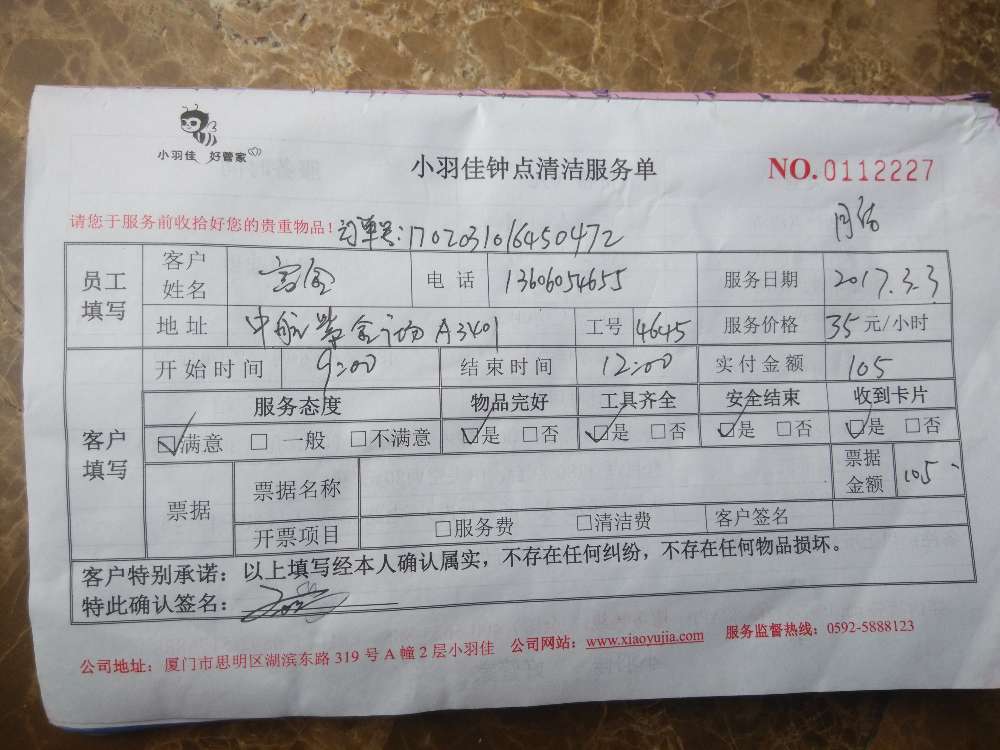 小羽佳 好管家
小羽佳钟点清洁服务单
NO.0112227
月结
请您于服务前收拾好您的贵重物品!订单号:170203106450472
员工填写 客户姓名 电话 13606054655 服务日期 2017.3.3
地址 中航紫金广场A3401 工号 4645 服务价格 35元/小时
客户填写 开始时间 9:00 结束时间 12:00 实付金额 105
服务态度 物品完好 工具齐全 安全结束 收到卡片
☑满意 □一般 □不满意 ☑是 □否 ☑是 □否 ☑是 □否 ☑是 □否
票据 票据名称 票据金额 105
开票项目 □服务费 □清洁费 客户签名
客户特别承诺:以上填写经本人确认属实,不存在任何纠纷,不存在任何物品损坏。
特此确认签名:
公司地址:厦门市思明区湖滨东路319号A幢2层小羽佳 公司网站:www.xiaoyujia.com 服务监督热线:0592-5888123